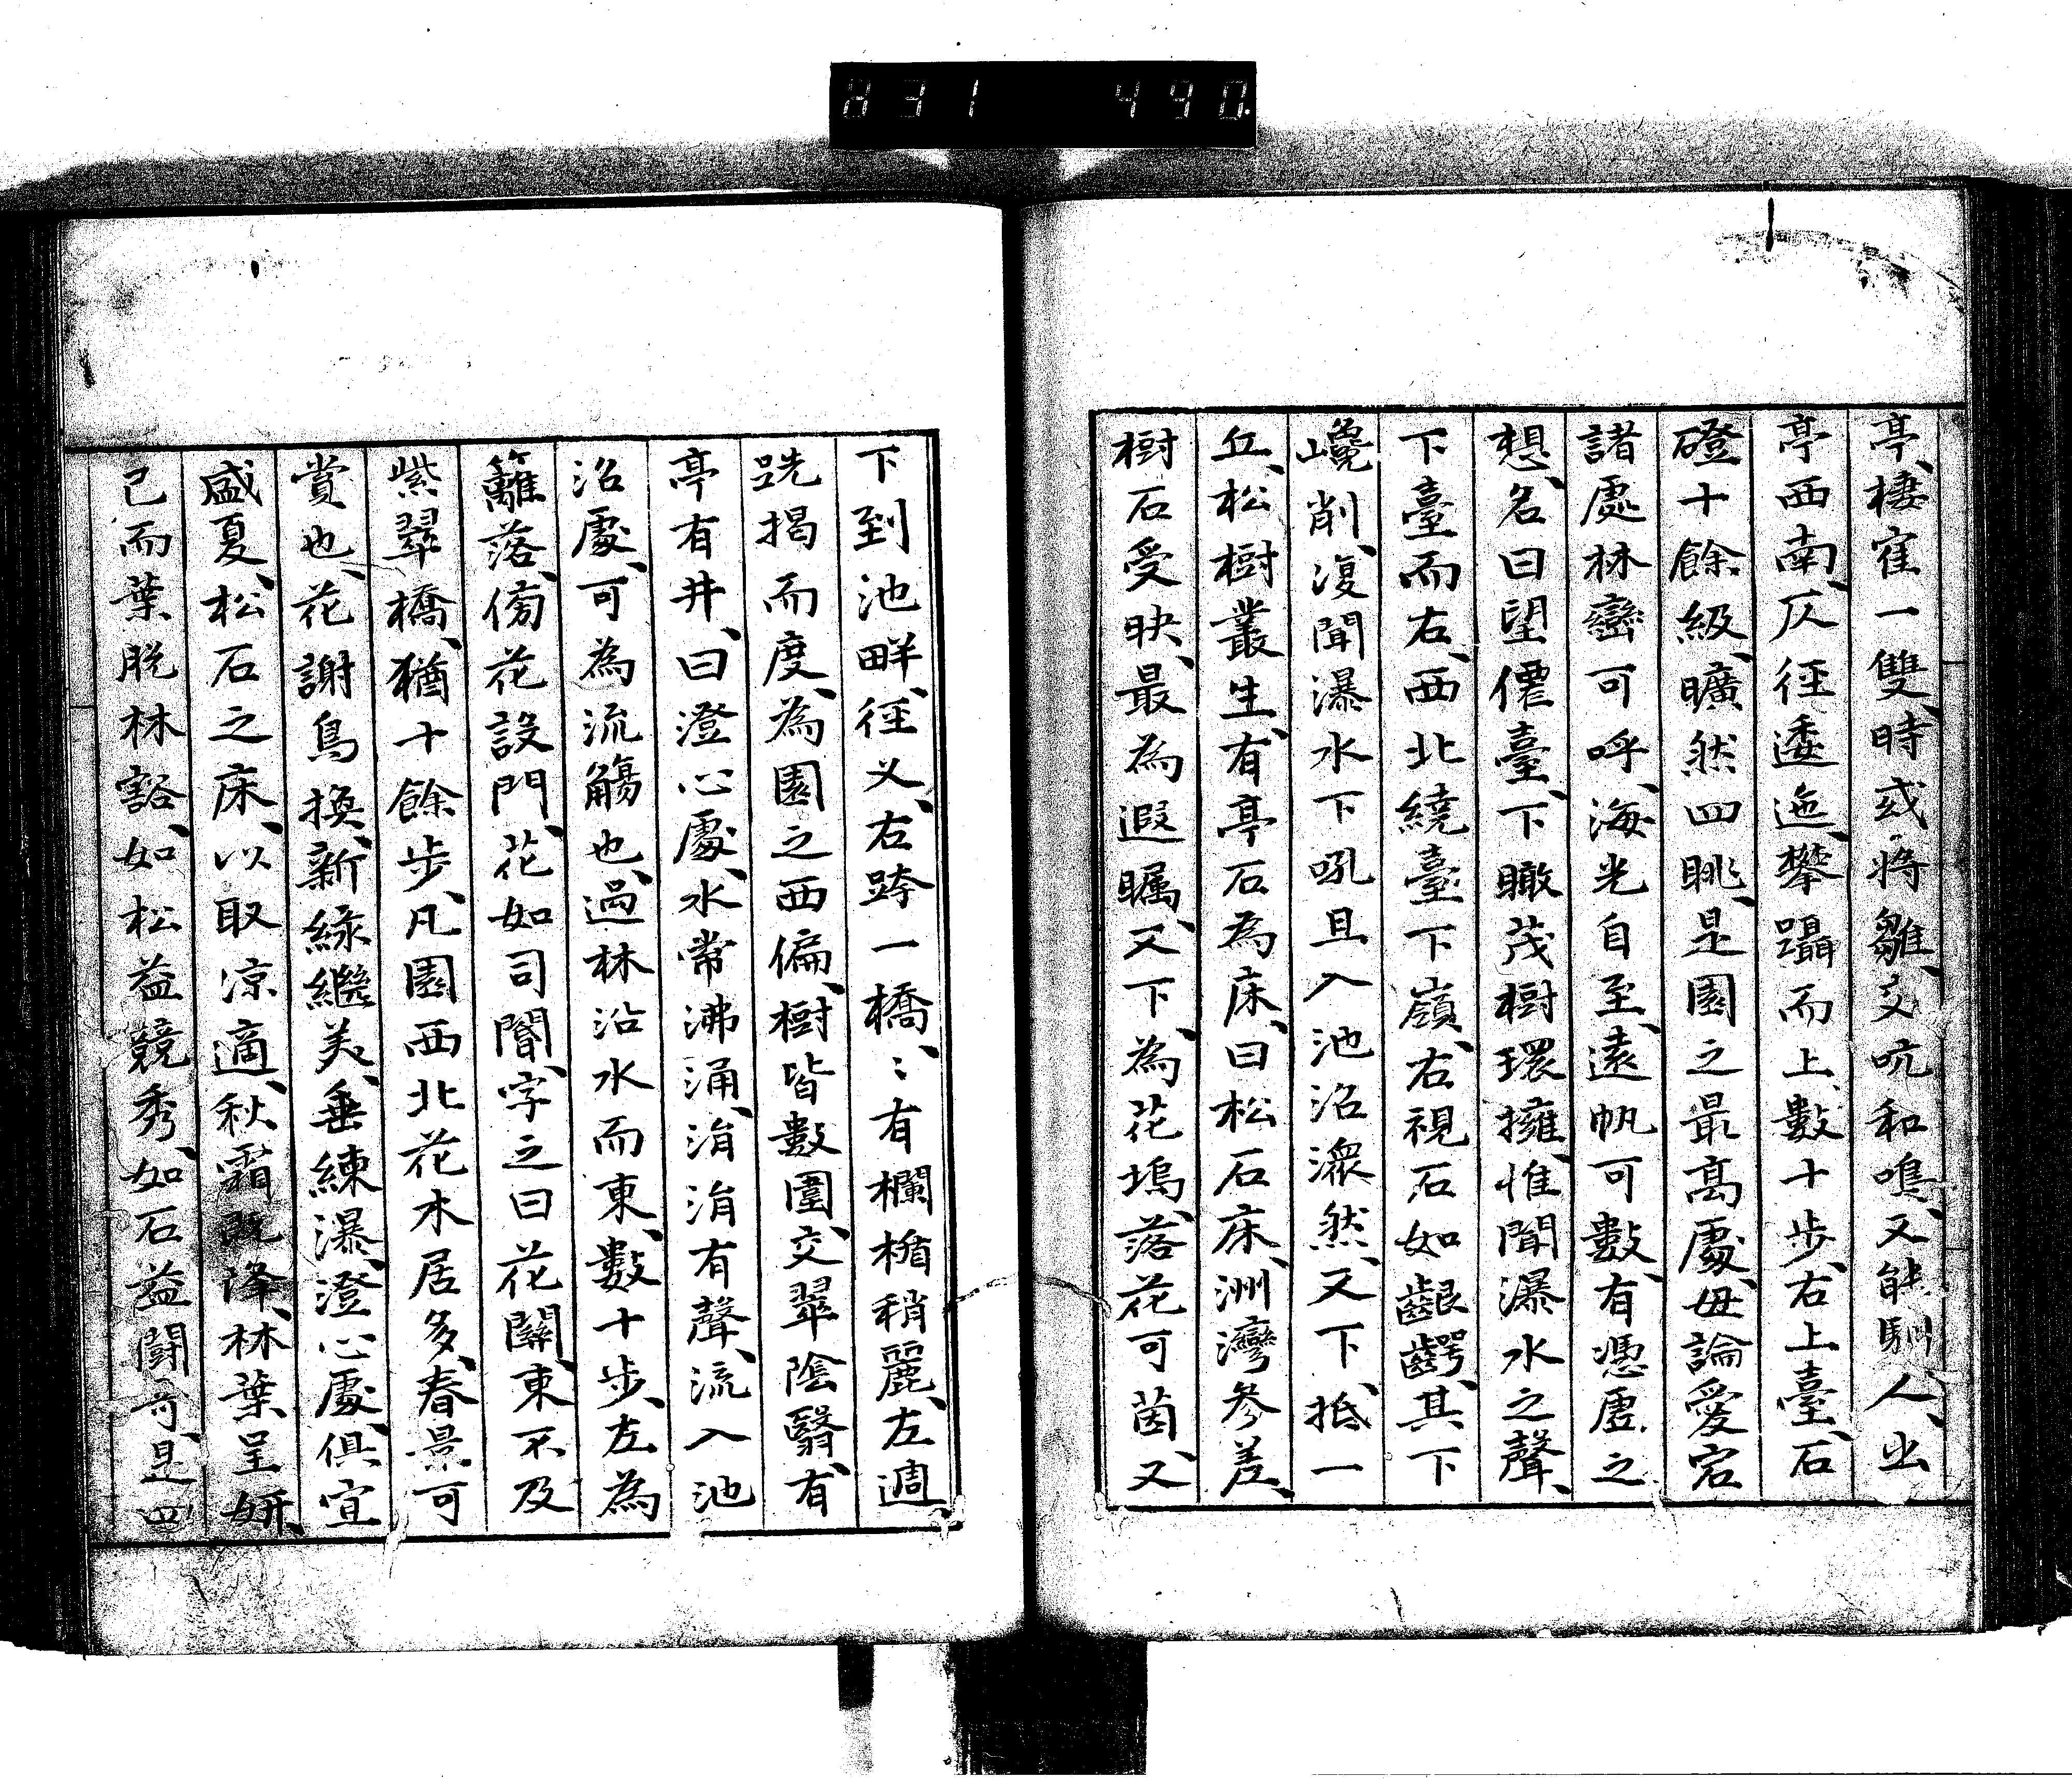 831 440.
亭、棲寉一雙、時或将雛、交吭和鳴、又能馴人、出
亭西南、仄徑逶迤、攀躡而上、數十步、右上臺、石
磴十餘級、曠然四眺、是園之最髙處、毋論愛宕
諸處林巒可呼、海光自至、遠帆可數、有憑虛之
想、名曰望僊臺、下瞰茂樹環擁、惟聞瀑水之聲、
下臺而右、西北繞臺下嶺、右視石如齦齶、其下
巉削、復聞瀑水下吼且入池沼潨然、又下、抵一
丘、松樹叢生、有亭石為床、曰松石床、洲灣參差、
樹石受映、最為遐矚、又下、為花塢、落花可茵、又
下到池畔、徑乂、右跨一橋、〻有欄楯稍麗、左週
跣揭而度、為園之西偏、樹皆數圍、交翠陰翳、有
亭有井、曰澄心處、水常沸涌、涓涓有聲、流入池
沼處、可為流觴也、過林沿水而東、數十步、左為
籬落、傍花設門、花如司閽、字之曰花關、東不及
紫翠橋、猶十餘步、凡園西北花木居多、春景可
賞也、花謝鳥換、新綠繼美、垂練瀑、澄心處、俱宜
盛夏、松石之床、以取凉適、秋霜既降、林葉呈妍、
已而葉脱林豁、如松益競秀、如石益鬪奇、是四